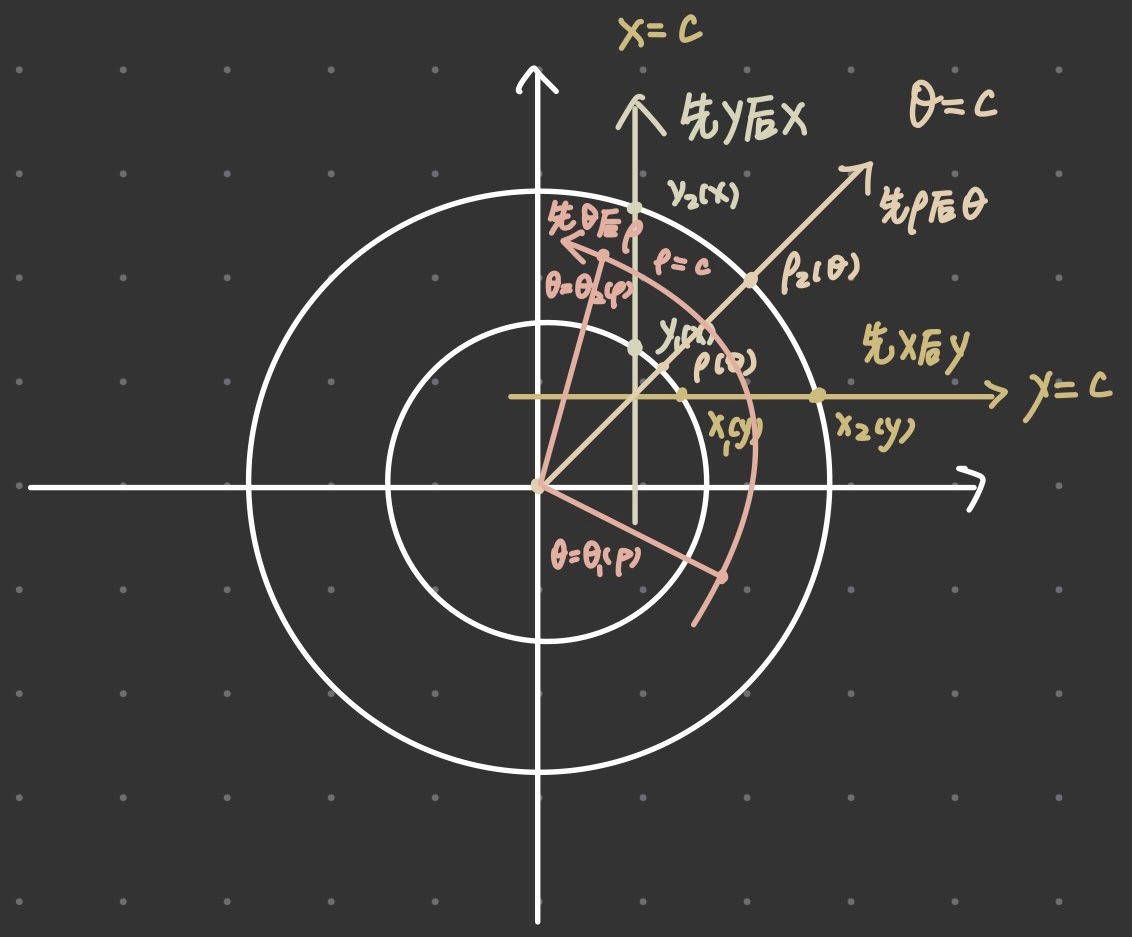 x=c
先y后x
θ=c
y₂(x)
先ρ后θ
先θ后ρ
ρ=c
ρ₂(θ)
θ=θ₂(ρ)
y₁(x)
先x后y
ρ(θ)
y=c
x₁(y)
x₂(y)
θ=θ₁(ρ)